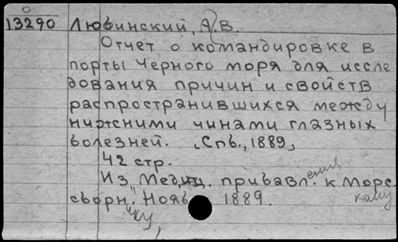 13290 Любинский, А.В.
Отчет о командировке в
порты Черного моря для иссле
дования причин и свойств
распространившихся между
нижними чинами глазных
болезней. Спб., 1889,
42 стр.
Из "Медиц. прибавлений к Морскому
сборнику", Нояб 1889.